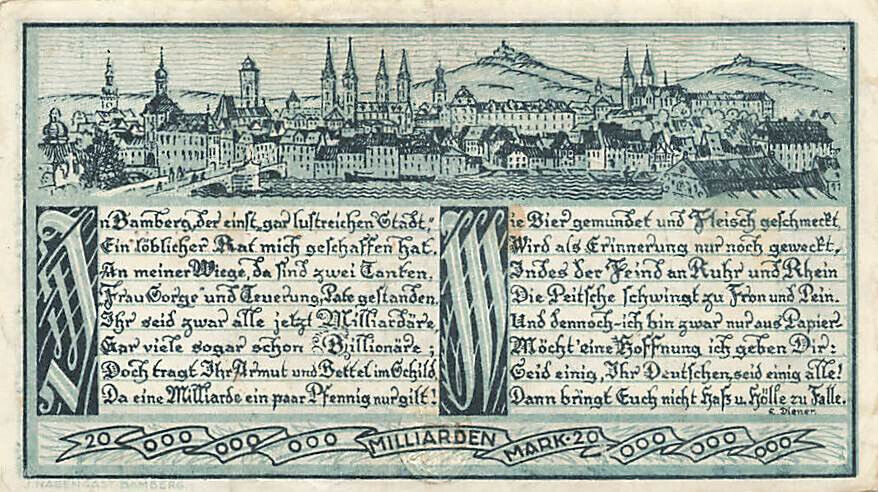 In Bamberg, der einst gar lustreichen Stadt,
Ein löblicher Rat mich geschaffen hat.
An meiner Wiege, da sind zwei Tanten,
„Frau Sorge“ und Teuerung, Pate gestanden.
Ihr seid zwar alle jetzt Milliardäre,
Gar viele sogar schon Billionäre;
Doch tragt Ihr Armut und Bettel im Schild,
Da eine Milliarde ein paar Pfennig nur gilt!
Wie Bier gemundet und Fleisch geschmeckt,
Wird als Erinnerung nur noch geweckt,
Indes der Feind an Ruhr und Rhein
Die Peitsche schwingt zu Fron und Pein.
Und dennoch-ich bin zwar nur aus Papier-
Möcht' eine Hoffnung ich geben Dir:
Seid einig, Ihr Deutschen, seid einig alle!
Dann bringt Euch nicht Haß u. Hölle zu Falle.
E. Diener.
20 000 000 000 MILLIARDEN MARK·20 000 000 000
J. NABENGAST BAMBERG